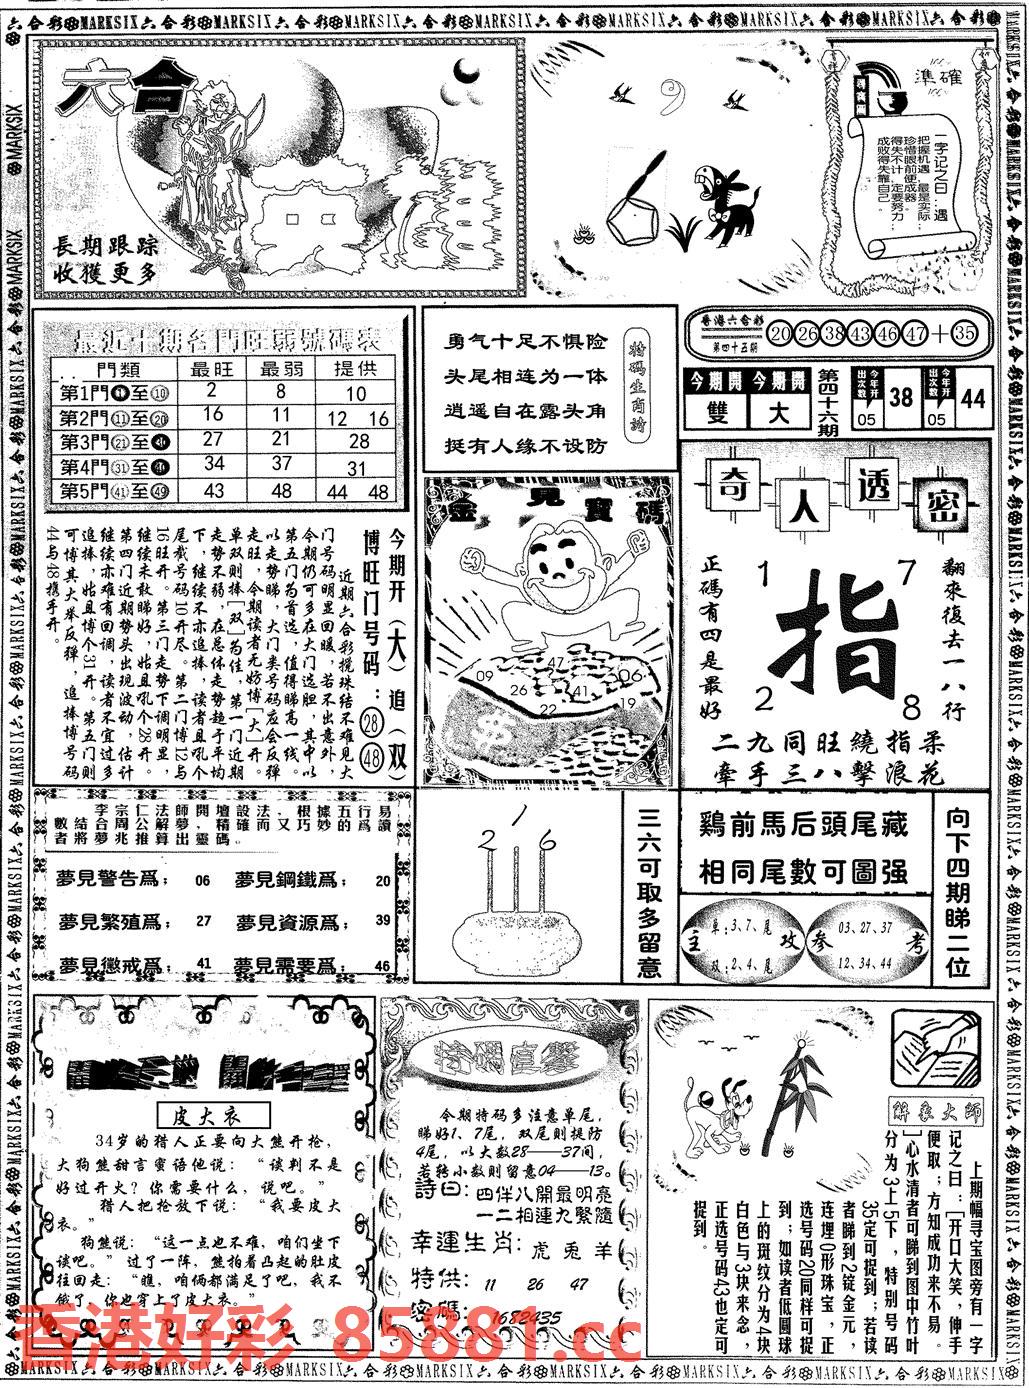 六合彩MARKSIX六合彩MARKSIX六合彩MARKSIX六合彩MARKSIX六合彩MARKSIX六合彩MARKSIX六合彩
六合
長期跟踪
收獲更多
9
準確
一字记之曰：遇
把握机遇，最是实际
珍惜眼前便成器。
得失不计，定要努力
成败得失靠自己。
最近十期各門旺弱號碼表
門類 最旺 最弱 提供
第1門①至⑩ 2 8 10
第2門⑪至⑳ 16 11 12 16
第3門㉑至㉚ 27 21 28
第4門㉛至㊵ 34 37 31
第5門㊶至㊾ 43 48 44 48
勇气十足不惧险
头尾相连为一体
逍遥自在露头角
挺有人缘不设防
特码生肖詩
香港六合彩
第四十五期
20 26 38 43 46 47 + 35
今期開 今期開
雙 大
第四十六期
今年开出次数 05 38
今年开出次数 05 44
今期开（大）追（双）
博旺门号码：28 48
近期六合彩搅珠结果不难见大
门号码明显回暖，若不出意外，
今期仍可多在大门选胆，其中以
第五门为首选，值得睇高一线。
金見寶碼
47
09
26
41
06
22
19
奇人透密
翻來復去一八行
正碼有四是最好
1 7
指
2 8
二九同旺繞指柔
牽手三八擊浪花
李宗仁法師開壇設法，根據五行易
數結合周公解夢，精確而又巧妙的爲讀
者將夢兆推算出靈碼。
夢見警告爲； 06 夢見鋼鐵爲； 20
夢見繁殖爲； 27 夢見資源爲； 39
夢見懲戒爲； 41 夢見需要爲； 46
1
2 6
三六可取多留意
鷄前馬后頭尾藏
相同尾數可圖强
主攻
单：3、7、尾
双：2、4、尾
参考
03、27、37
12、34、44
向下四期睇二位
皮大衣
34岁的猎人正要向大熊开枪，
大狗熊甜言蜜语他说：“谈判不是
好过开火？你需要什么，说吧。”
猎人把枪放下说：“我要皮大
衣。”
狗熊说：“这一点也不难，咱们坐下
谈吧。”过了一阵，熊拍着凸起的肚皮
往回走：“瞧，咱俩都满足了吧，我不
饿了，你也穿上了皮大衣。”
特碼直擊
今期特码多注意单尾，
睇好1、7尾，双尾则提防
4尾，以大数28——37间，
若转小数则留意04——13。
詩曰：四伴八開最明亮
一二相連九緊隨
幸運生肖：虎 兎 羊
特供： 11 26 47
密碼： 1682435
解象大師
上期幅寻宝图旁有一字
记之曰：[开口大笑，伸手
便取；方知成功来不易。
]心水清者可睇到图中竹叶
分为3上5下，特别号码
35定可捉到；若读
者睇到2锭金元，
连埋0形珠宝，正
选号码20同样可捉
到；如读者低圆球
上的斑纹分为4块
白色与3块米念，
正选号码43也定可
捉到。
香港好彩 85881.cc
六合彩MARKSIX六合彩MARKSIX六合彩MARKSIX六合彩MARKSIX六合彩MARKSIX六合彩MARKSIX六合彩